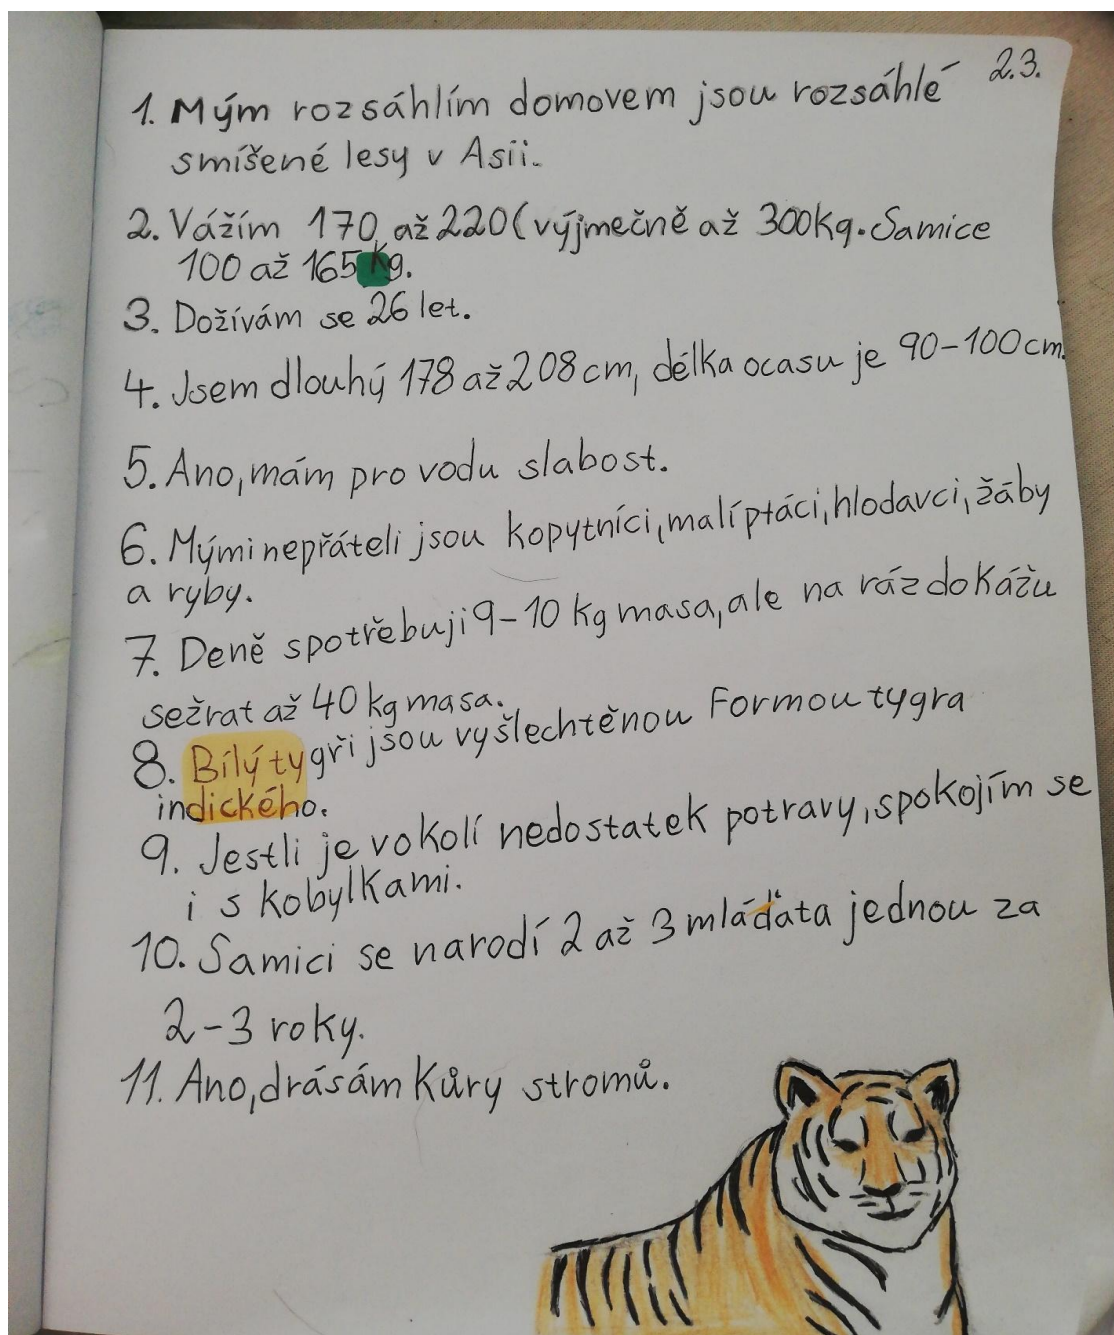 2.3.
1. Mým rozsáhlím domovem jsou rozsáhlé
smíšené lesy v Asii.
2. Vážím 170 až 220 (výjmečně až 300kg. Samice
100 až 165 kg.
3. Dožívám se 26 let.
4. Jsem dlouhý 178 až 208 cm, délka ocasu je 90-100 cm.
5. Ano, mám pro vodu slabost.
6. Mými nepřáteli jsou kopytníci, malí ptáci, hlodavci, žáby
a ryby.
7. Deně spotřebuji 9-10 kg masa, ale na ráz dokážu
sežrat až 40 kg masa.
8. Bílý tygři jsou vyšlechtěnou Formou tygra
indického.
9. Jestli je v okolí nedostatek potravy, spokojím se
i s kobylkami.
10. Samici se narodí 2 až 3 mláďata jednou za
2-3 roky.
11. Ano, drásám kůry stromů.